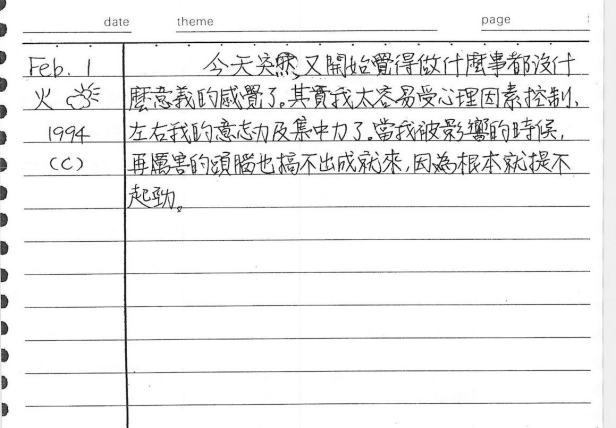 date theme page
Feb. 1 今天突然又開始覺得做什麼事都沒什
火 麼意義的感覺了。其實我太容易受心理因素控制,
1994 左右我的意志力及集中力了。當我被影響的時候,
(C) 再厲害的頭腦也搞不出成就來,因為根本就提不
起勁。